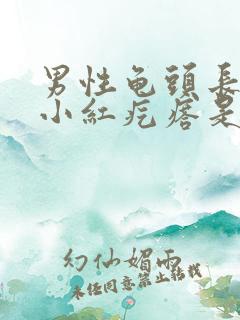 男性龟頭長
小紅疙瘩是
幻仙媚雨
未经同意禁止转载